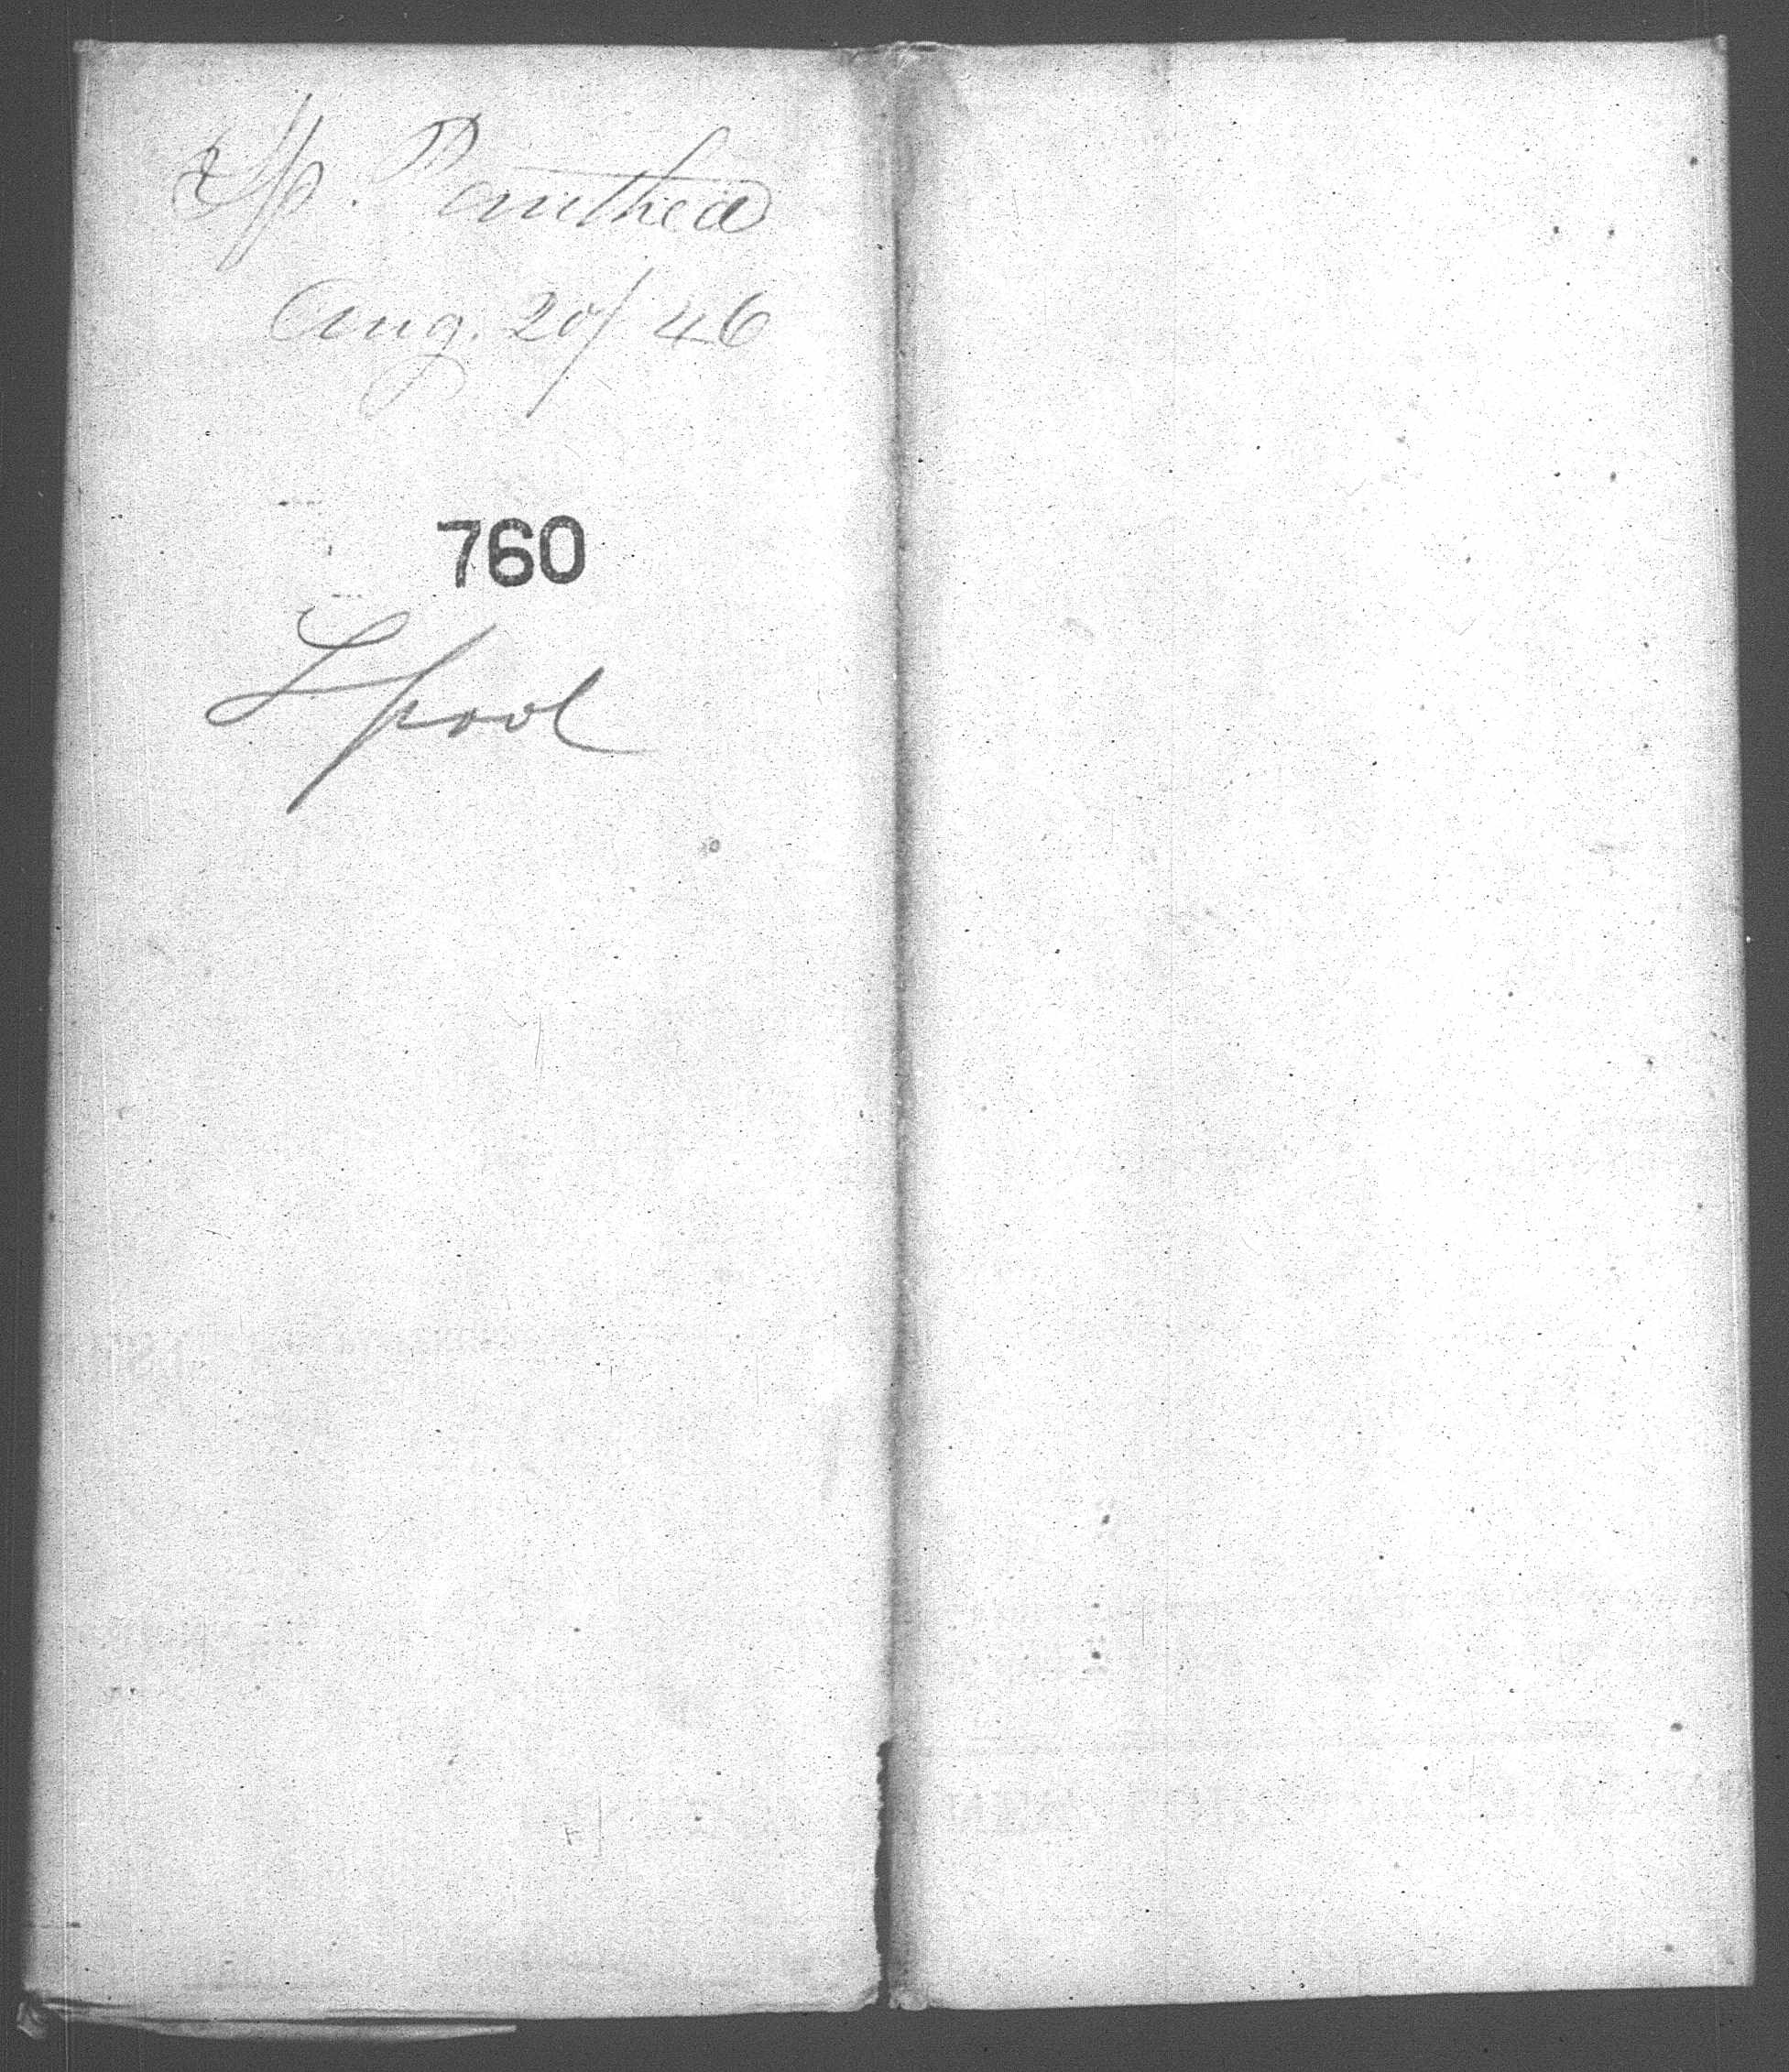 Sp. Panthea
Aug. 20/46
760
Lpool